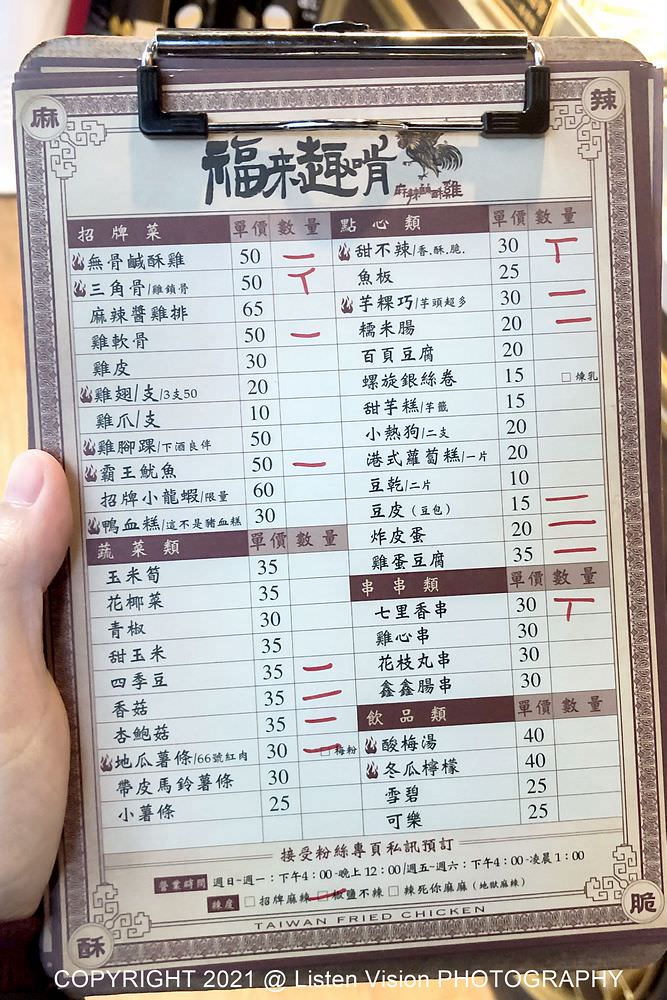 麻
辣
福來趣啃
麻辣鹹酥雞
招牌菜 單價 數量
無骨鹹酥雞 50 一
三角骨/雞鎖骨 50 丅
麻辣醬雞排 65
雞軟骨 50 一
雞皮 30
雞翅/支/3支50 20
雞爪/支 10
雞腳踝/下酒良伴 50
霸王魷魚 50 一
招牌小龍蝦/限量 60
鴨血糕/這不是豬血糕 30
蔬菜類 單價 數量
玉米筍 35
花椰菜 35
青椒 30
甜玉米 35
四季豆 35 一
香菇 35 一
杏鮑菇 35 一
地瓜薯條/66號紅肉 30 一 □梅粉
帶皮馬鈴薯條 30
小薯條 25
點心類 單價 數量
甜不辣/香.酥.脆. 30 丅
魚板 25
芋粿巧/芋頭超多 30 一
糯米腸 20 一
百頁豆腐 20
螺旋銀絲卷 15 □煉乳
甜芋糕/芋籤 15
小熱狗/二支 20
港式蘿蔔糕/一片 20
豆乾/二片 10
豆皮(豆包) 15 一
炸皮蛋 20 一
雞蛋豆腐 35 一
串串類 單價 數量
七里香串 30 丅
雞心串 30
花枝丸串 30
鑫鑫腸串 30
飲品類 單價 數量
酸梅湯 40
冬瓜檸檬 40
雪碧 25
可樂 25
接受粉絲專頁私訊預訂
營業時間 週日~週一：下午4：00-晚上12：00/週五~週六：下午4：00-凌晨1：00
辣度 □招牌麻辣 □椒鹽不辣 □辣死你麻麻(地獄麻辣)
TAIWAN FRIED CHICKEN
酥
脆
COPYRIGHT 2021 @ Listen Vision PHOTOGRAPHY